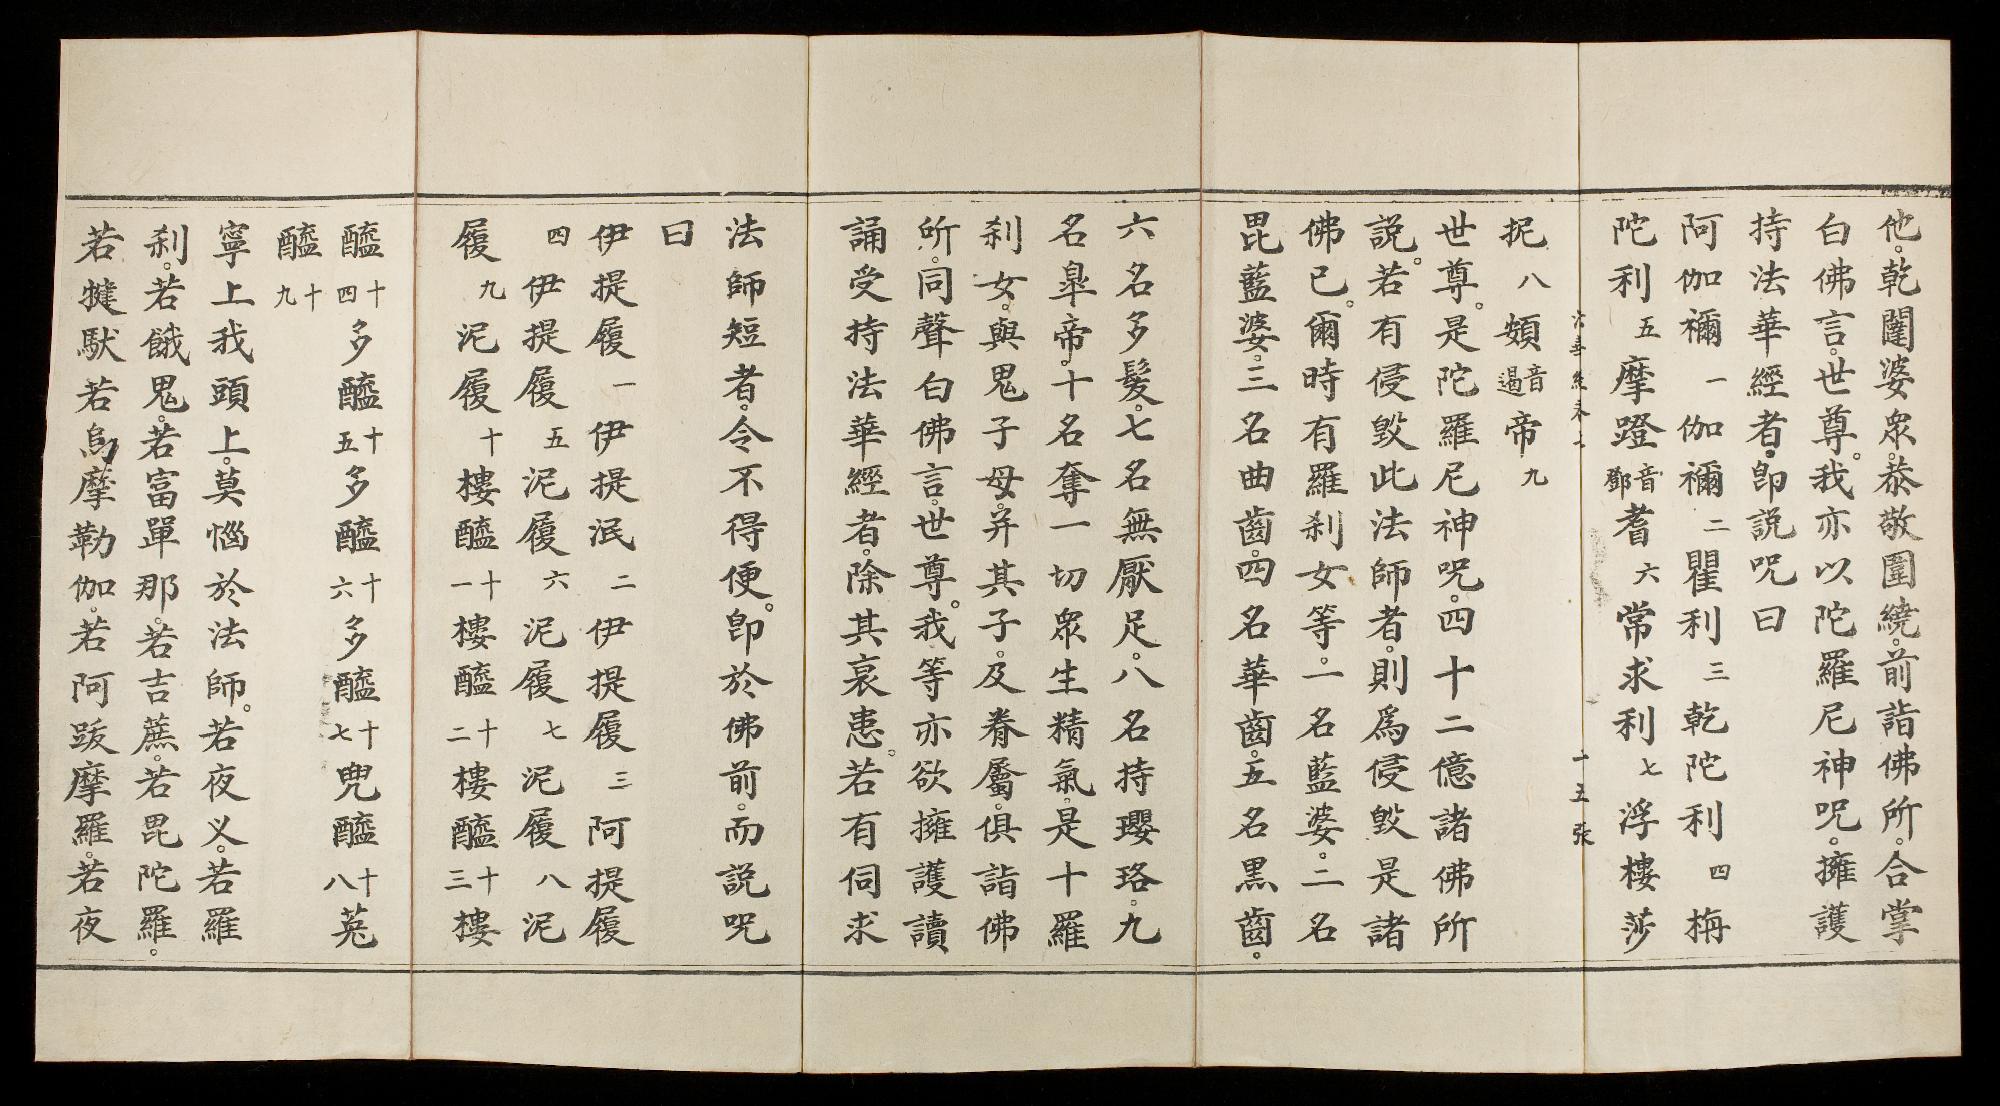 他。乾闥婆眾。恭敬圍繞。前詣佛所。合掌
白佛言。世尊。我亦以陀羅尼神呪。擁護
持法華經者。即說呪曰
阿伽禰一伽禰二瞿利三乾陀利四栴
陀利五摩蹬音鄧耆六常求利七浮樓莎
一五張
抳八頞音遏帝九
世尊。是陀羅尼神呪。四十二億諸佛所
說。若有侵毀此法師者。則爲侵毀是諸
佛已。爾時有羅刹女等。一名藍婆。二名
毘藍婆。三名曲齒。四名華齒。五名黒齒。
六名多髮。七名無厭足。八名持瓔珞。九
名睪帝。十名奪一切眾生精氣。是十羅
刹女。與鬼子母。并其子。及眷屬。俱詣佛
所。同聲白佛言。世尊。我等亦欲擁護讀
誦受持法華經者。除其衰患。若有伺求
法師短者。令不得便。即於佛前。而說呪
曰
伊提履一伊提泯二伊提履三阿提履
四伊提履五泥履六泥履七泥履八泥
履九泥履十樓醯十一樓醯十二樓醯十三樓
醯十四多醯十五多醯十六多醯十七兜醯十八㝹
醯十九
寧上我頭上。莫惱於法師。若夜叉。若羅
刹。若餓鬼。若富單那。若吉蔗。若毘陀羅。
若犍馱若烏摩勒伽。若阿跋摩羅。若夜